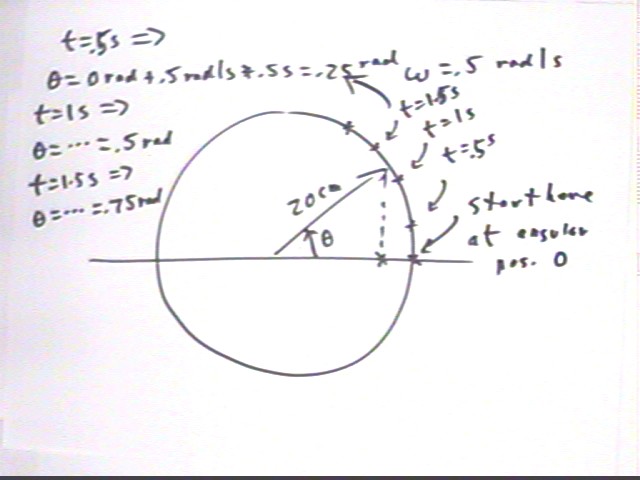 t=.5s =>
θ = 0 rad + .5 rad/s * .5s = .25 rad
ω = .5 rad/s
t=1s =>
θ = ... = .5 rad
t=1.5s =>
θ = ... = .75 rad
t=1.5s
t=1s
t=.5s
20cm
θ
start here
at angular
pos. 0